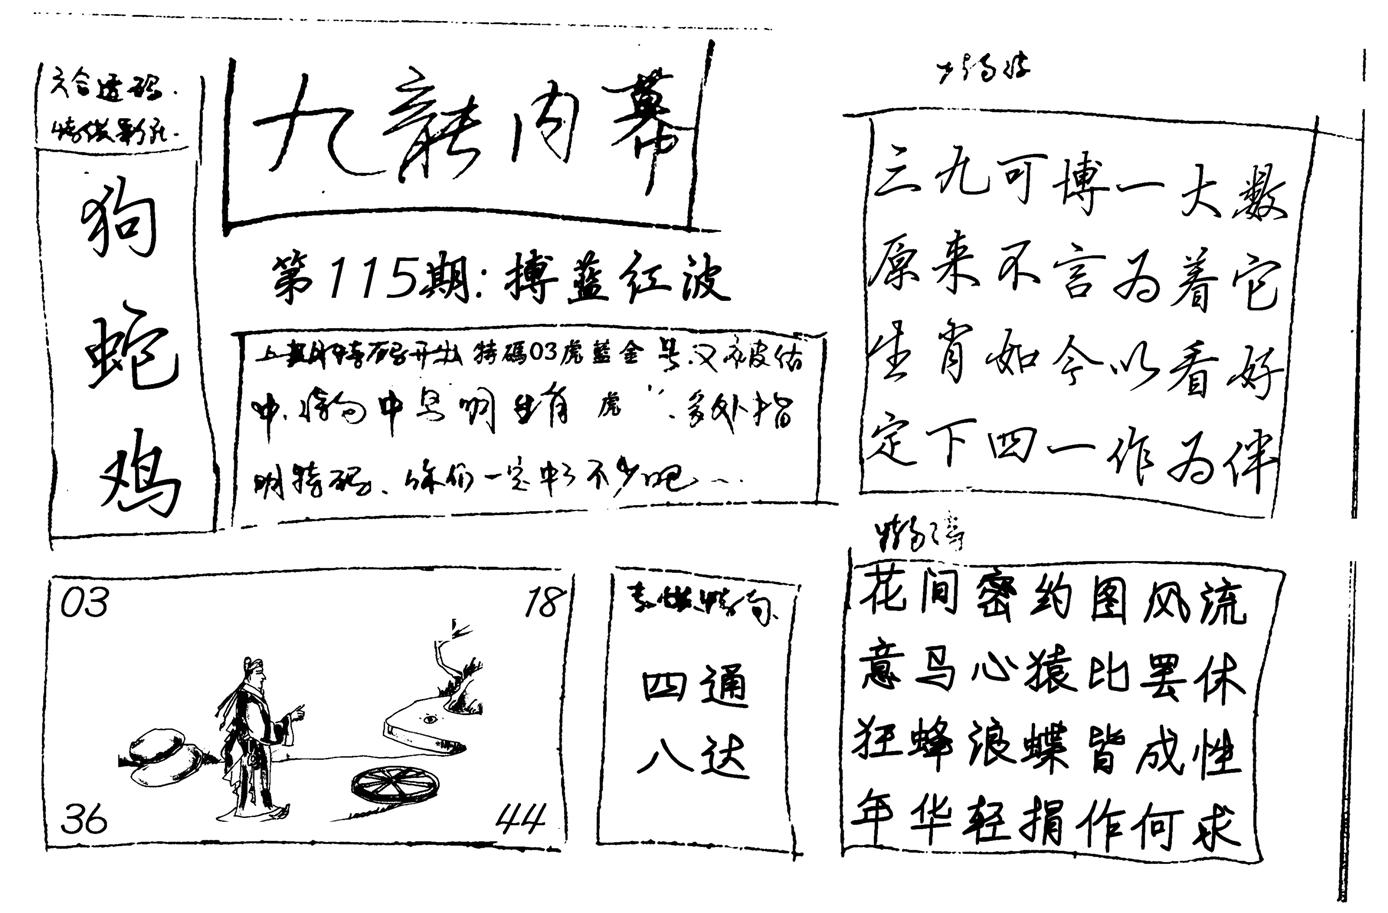 六合透码.
特供彩民.
狗
蛇
鸡
九龍内幕
第115期:搏蓝红波
上期特码开出特碼03虎藍金号.又被估
中.特句中 明 生肖虎''.多处指
明特码、你们一定中了不少吧...
三九可博一大数
原来不言为着它
生肖如今以看好
定下四一作为伴
花间密约图风流
意马心猿比罢休
狂蜂浪蝶皆成性
年华轻捐作何求
03
18
36
44
四通
八达